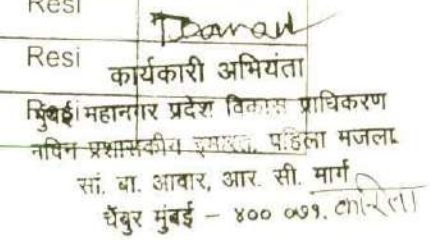 Resi
Resi
कार्यकारी अभियंता
मुंबई महानगर प्रदेश विकास प्राधिकरण
नविन प्रशासकीय इमारत, पहिला मजला
सां. बा. आवार, आर. सी. मार्ग
चेंबुर मुंबई - ४०० ०७१.
करिता